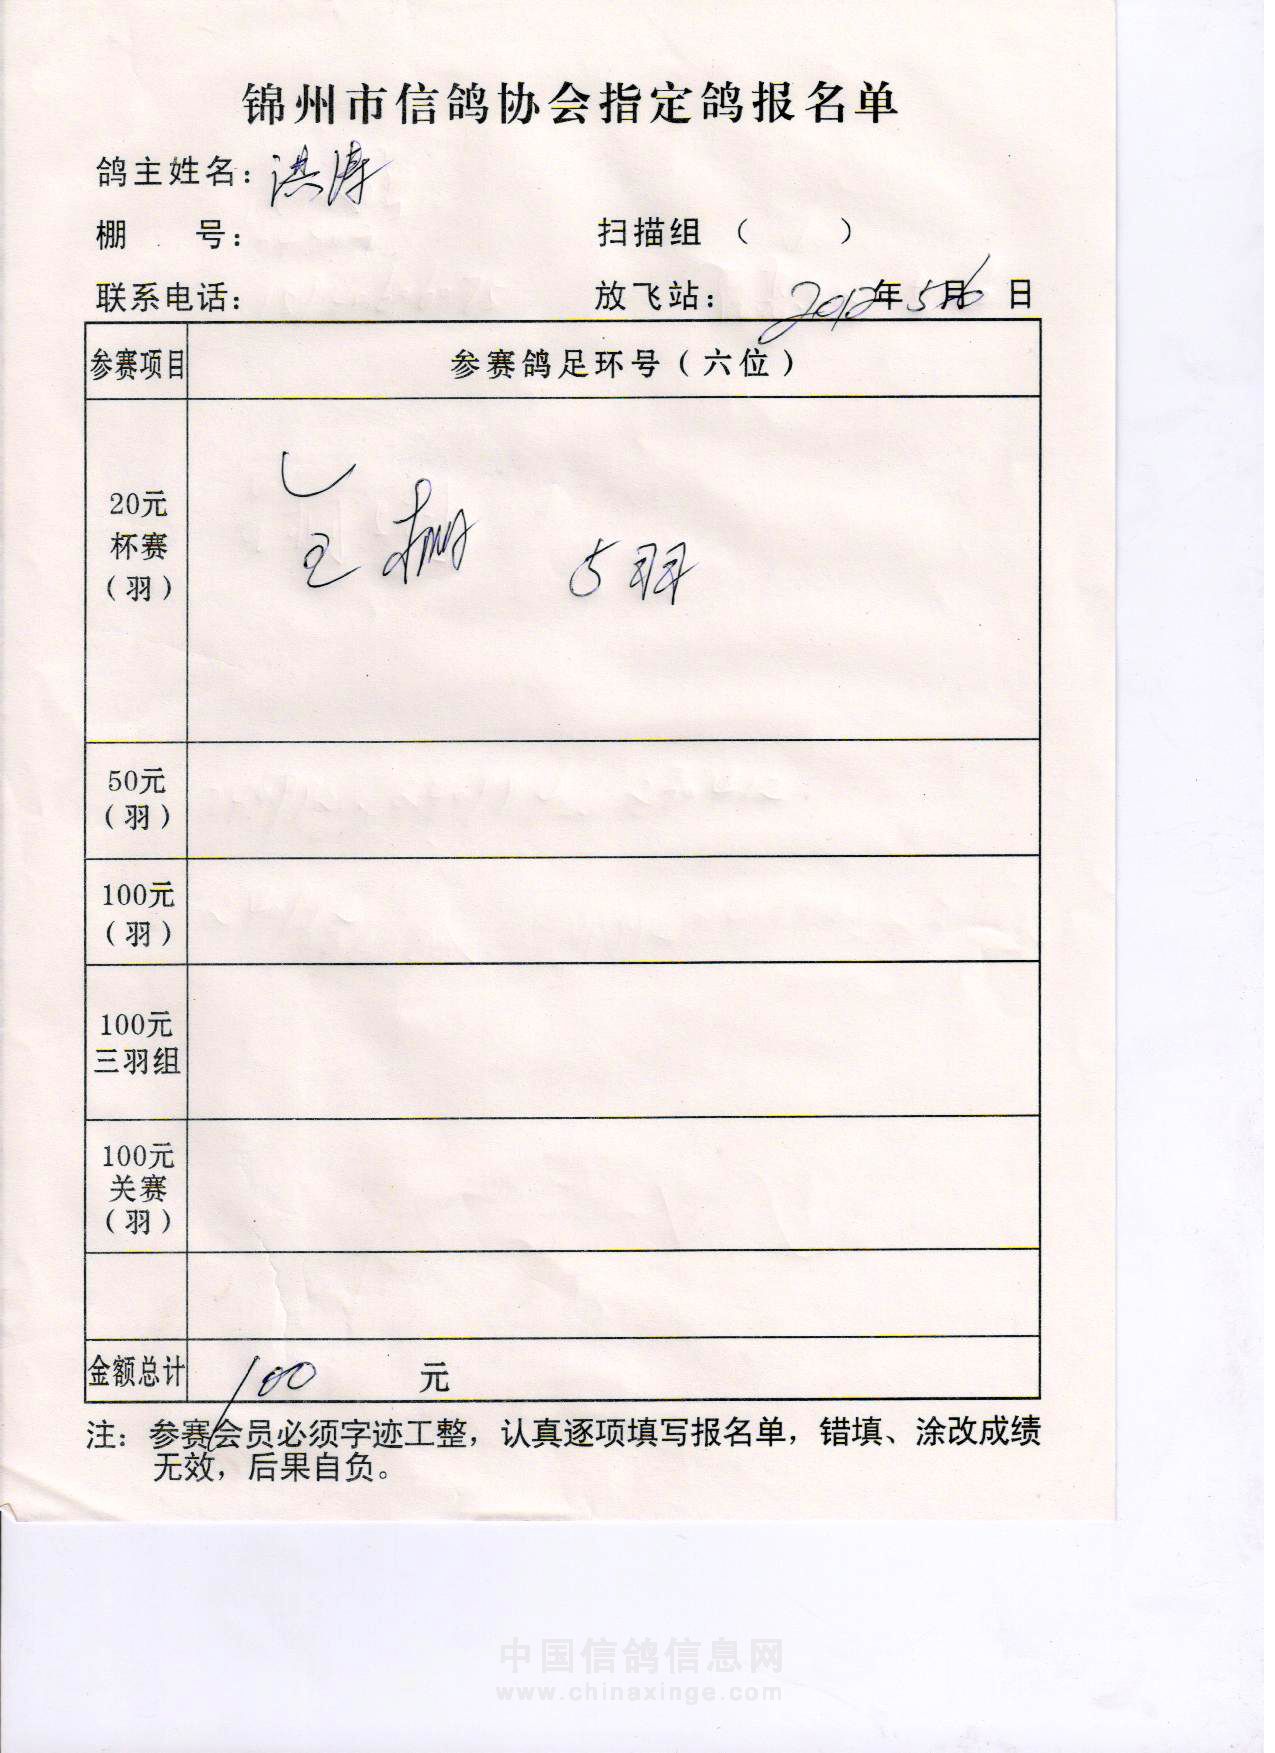 锦州市信鸽协会指定鸽报名单
鸽主姓名：洪涛
棚 号：
扫描组（ ）
联系电话：
放飞站：
2012年5月6日
参赛项目
参赛鸽足环号（六位）
20元
杯赛
（羽）
全棚 5羽
50元
（羽）
100元
（羽）
100元
三羽组
100元
关赛
（羽）
金额总计
100 元
注：参赛会员必须字迹工整，认真逐项填写报名单，错填、涂改成绩
无效，后果自负。
中国信鸽信息网
www.chinaxinge.com